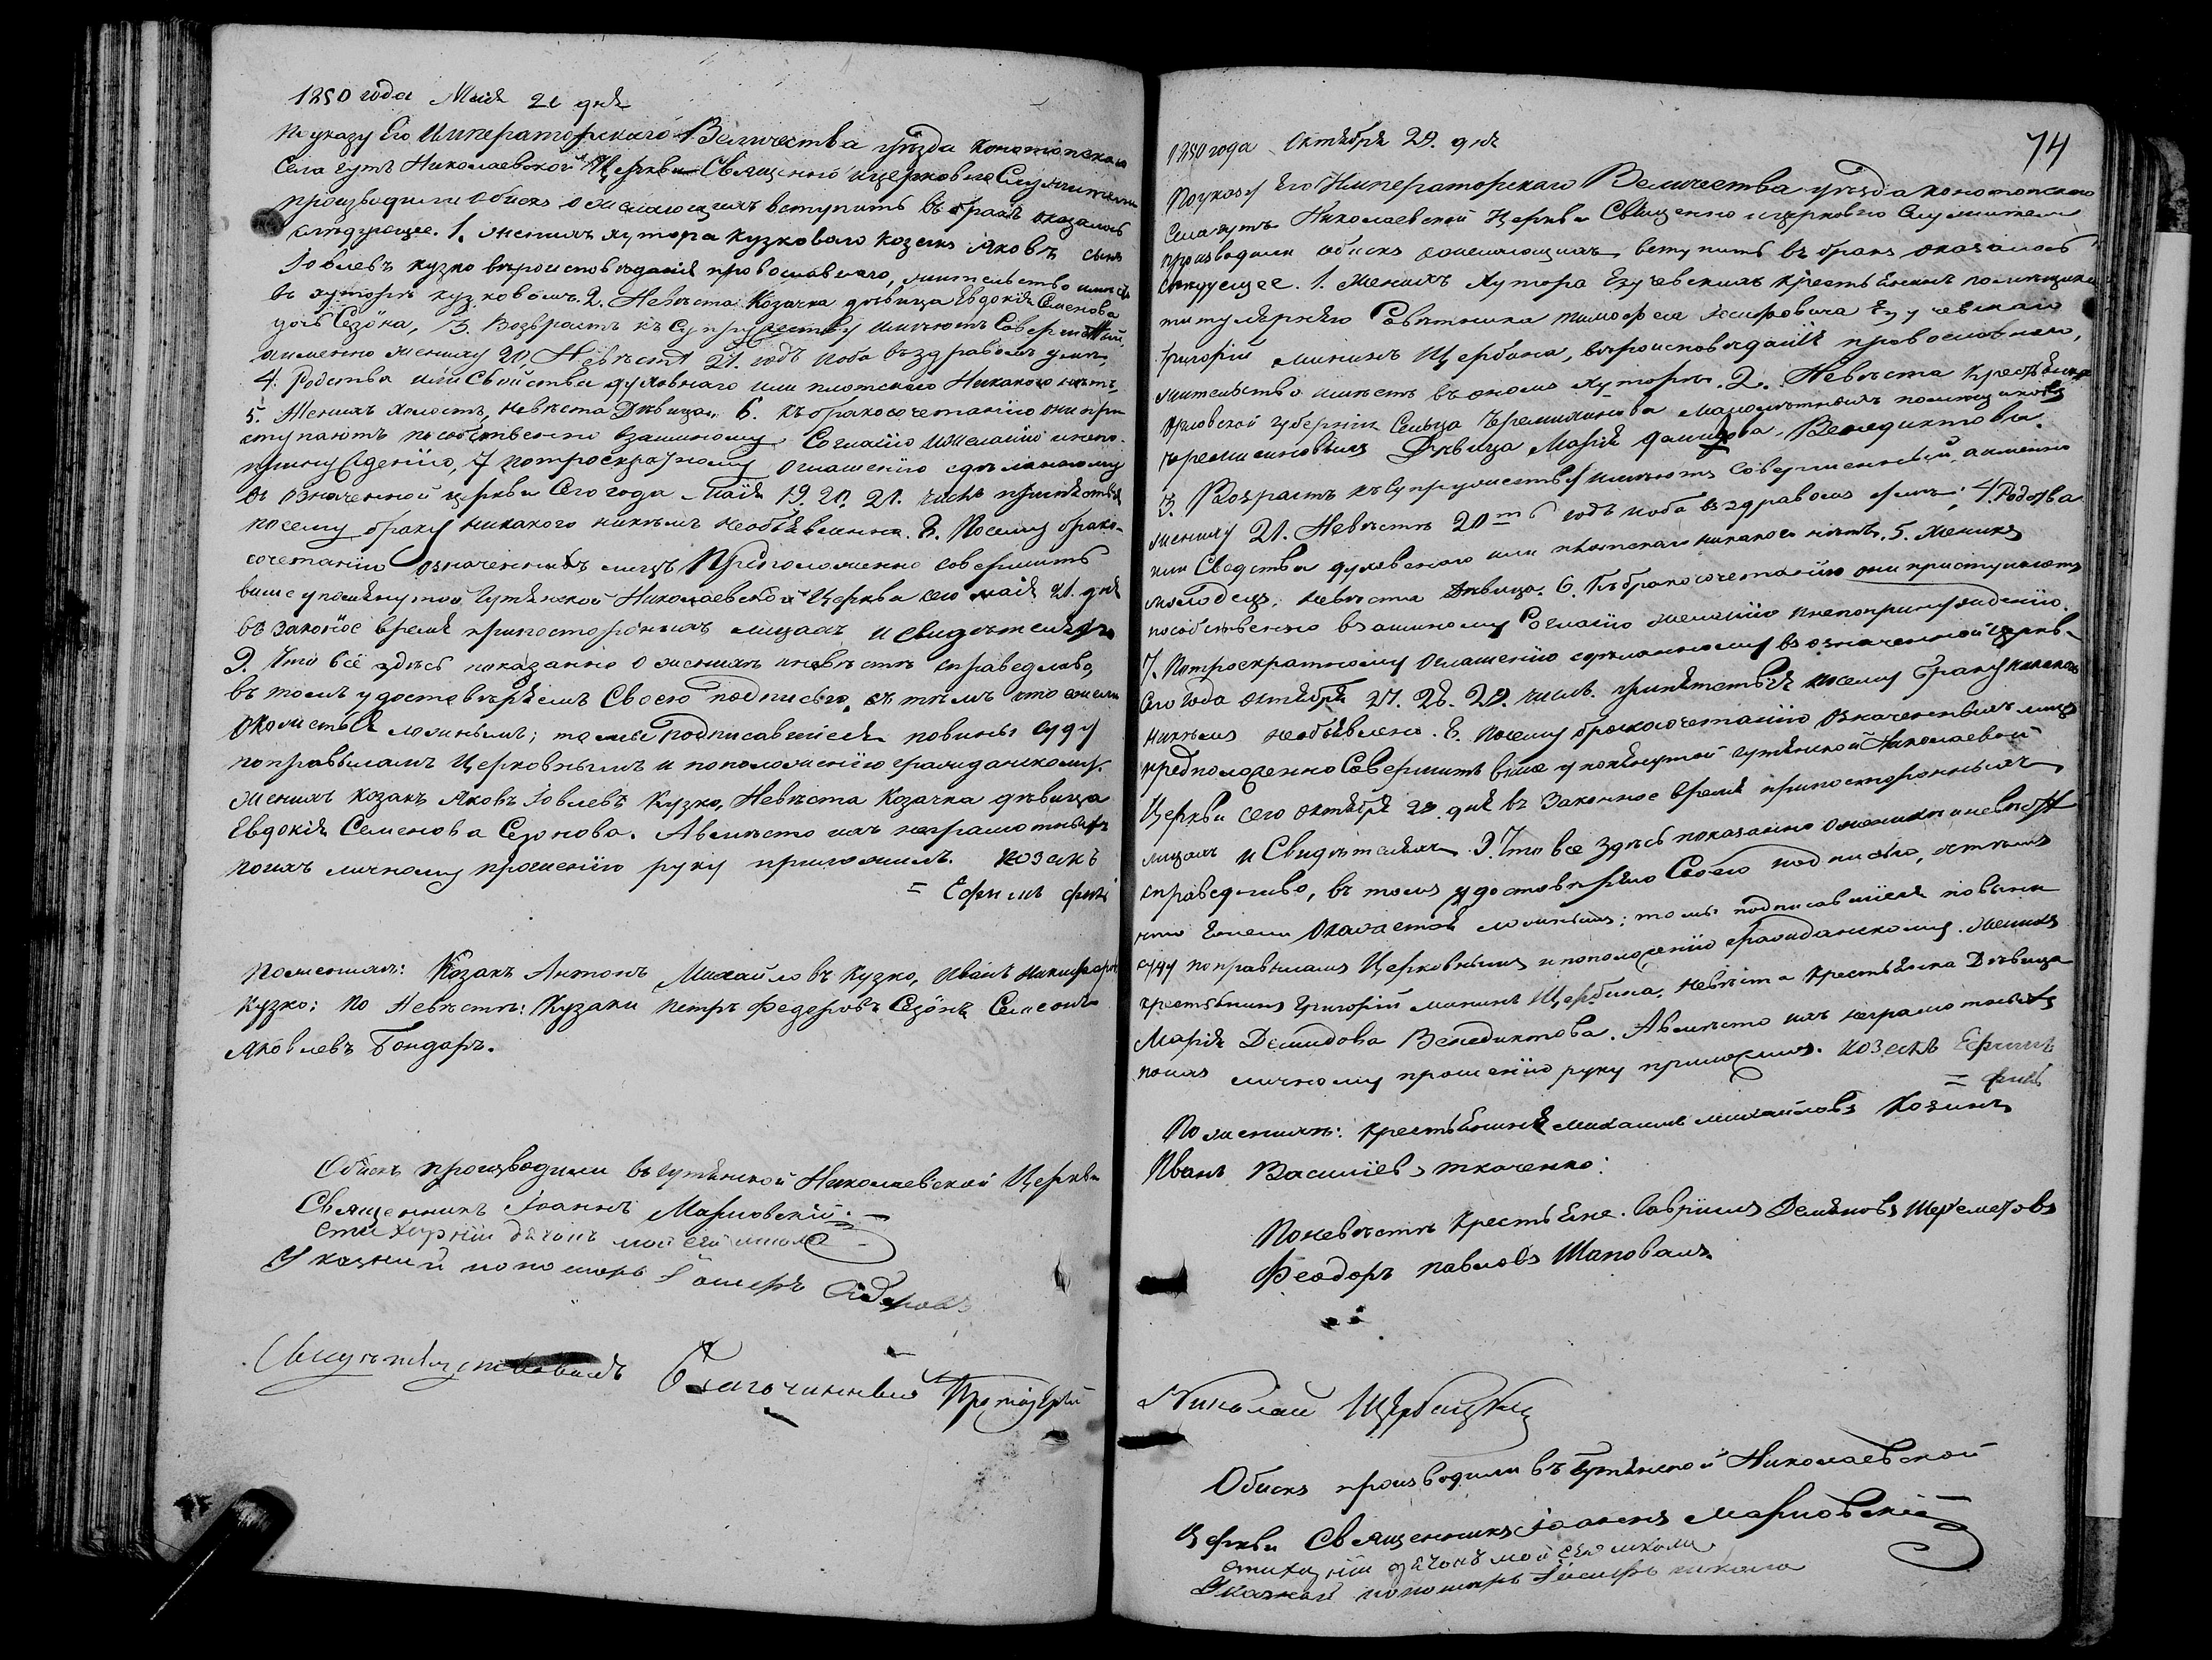 1850 года Маія 21 дня
По указу Его Императорскаго Величества уѣзда Конотопскаго
Села Гутъ Николаевской Церкви Священно и церковно Служители
производили обискъ о желающихъ вступить въ бракъ оказалось
слѣдующее. 1. женихъ хутора Кузкового Козакъ Яковъ сынъ
Іовлевъ Кузко вѣроисповѣданія православнаго, жительство имѣетъ
въ хуторѣ Кузковомъ. 2. Невѣста Козачка дѣвица Евдокія Семенова
дочь Сезона, 3. Возврастъ къ Супружеству имѣютъ Совершенный,
а именно жениху 20, Невѣстѣ 21. годъ и оба въ здравомъ умѣ,
4. Родства или Свойства духовнаго или плотскаго Никакого нѣтъ,
5. Женихъ холостъ, невѣста Дѣвица. 6. къ бракосочетанію они при
ступаютъ по собственно взаимному Согласію и желанію и непо
принужденію, 7 по троекратному оглашенію сдѣланному
въ означенной церкви Сего года Маія 19. 20. 21. числъ препятствія
посему браку никакого никѣмъ необъявленно. 8. Посему брако-
сочетанію означенныхъ лицъ Преположенно совершить
выше упомянутой Гутянской Николаевской Церкви сего маія 21. дня
въ законое время при постороннихъ лицахъ и свидѣтеляхъ
9. Что всё здѣсь показанно о женихѣ и невѣстѣ справедливо,
въ томъ удостовѣряемъ Своею подписью, съ тѣмъ что если
окажется ложнымъ; то мы Подписавшіеся повины суду
по правиламъ Церковнымъ и по положенію гражданскому.
Женихъ козакъ Яковъ Іовлевъ Кузко, Невѣста Козачка дѣвица
Евдокія Семенова Сезонова. А вмѣсто ихъ неграмотныхъ
по ихъ личному прошенію руку приложилъ. Козакъ
= Ефимъ
По женихѣ: Козакъ Антонъ Михайловъ Кузко, Иванъ Никифоровъ
Кузко: по Невѣстѣ: Кузаки Петръ Федоровъ Сезонъ Семенъ
Яковлевъ Бондаръ.
Обискъ производили въ Гутянской Николаевской Церкви
Священникъ Іоаннъ Марковскій.
Стихарній дячокъ
Указний пономаръ
Благочинный Протоіерей
74
1850 года Октября 29. дня
По указу Его Императорскаго Величества уѣзда Конотопскаго
Села Гутъ Николаевской Церкви Священно и церковно служители
производили обискъ о желающихъ вступить въ бракъ оказалось
слѣдующее. 1. женихъ Хутора Езучевскихъ крестьянинъ помѣщика
титулярнаго Совѣтника Тимофея Езучевскаго
Григорій Мининъ Щербина, вѣроисповѣданія православнаго,
жительство имѣетъ въ ономъ хуторѣ. 2. Невѣста крестьянка
Орловской губерніи Сельца помѣщиковъ
Дѣвица Марія Демидова Венедиктова.
3. Возрастъ къ супружеству имѣютъ совершенный, а именно
жениху 21. Невѣстѣ 20ть годъ и оба въ здравомъ умѣ; 4. Родства
или Сводства духовенаго или плотскаго никакого нѣтъ. 5. женихъ
молодецъ, невѣста дѣвица. 6. Къ бракосочетанію они приступаютъ
по собственно взаимному Согласію желанію и непопринужденію.
7. По троекратному оглашенію сдѣланному въ означенной церкв-
Сего года октября 27. 28. 29. числъ. препятствія посему браку никаког
никѣмъ необъявлено. 8. Посему бракосочетанію означенныхъ лицъ
предположенно Совершить выше упомянутой Гутянской Николаевой
Церкви сего октября 29. дня въ Законное время при постороннихъ
лицахъ и Свидѣтеляхъ. 9. Что все здѣсь показанно о женихѣ и невѣстѣ
справедливо, въ томъ удостовѣряю Своею подписью, съ тѣмъ
что ежели окажется ложнымъ: то мы подписавшіеся повины
суду по правиламъ Церковнымъ и по положенію гражданскому. Женихъ
крестьянинъ Григорій Мининъ Щербина, невѣста крестьянка Дѣвица
Марія Демидова Венедиктова. А вмѣсто ихъ неграмотныхъ
по ихъ личному прошенію руку приложилъ. Козакъ Ефимъ
По женихѣ: крестьянинъ Михаилъ Михайловъ Козинъ
Иванъ Василіевъ Ткаченко:
По невѣстѣ Крестьяне. Гавріилъ Демяновъ Шереметовъ
Феодоръ Павловъ Шаповалъ
Николай Щербацкій
Обискъ производили въ Гутянской Николаевской
Церкви Священникъ Іоаннъ Марковскій
дячокъ
Указной пономаръ